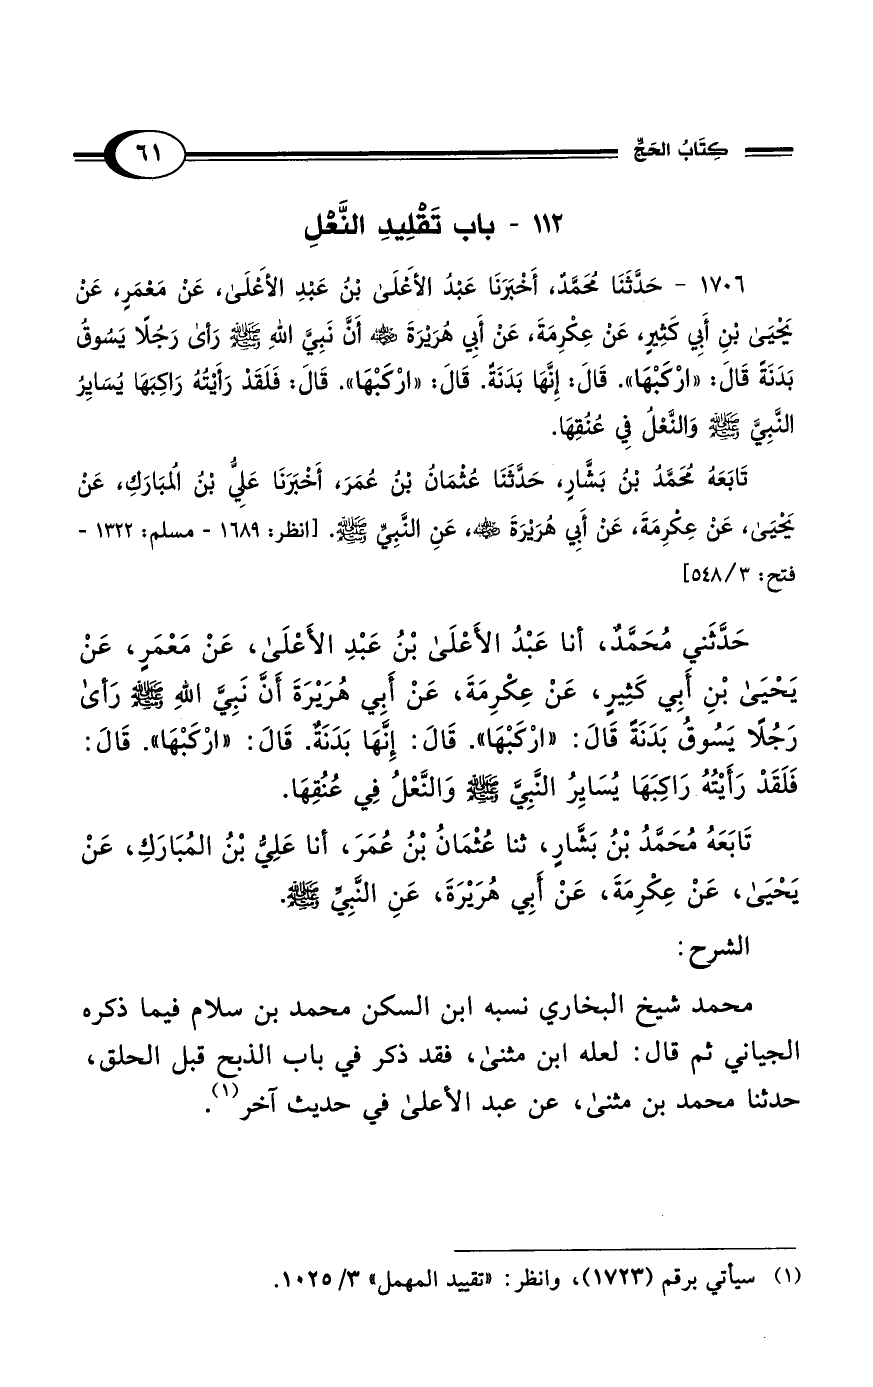 كِتَابُ الحَجِّ
٦١
١١٢ - باب تَقْلِيدِ النَّعْلِ
١٧٠٦ - حَدَّثَنَا مُحَمَّدٌ، أَخْبَرَنَا عَبْدُ الأَعْلَىٰ بْنُ عَبْدِ الأَعْلَىٰ، عَنْ مَعْمَرٍ، عَنْ
يَحْيَىٰ بْنِ أَبِي كَثِيرٍ، عَنْ عِكْرِمَةَ، عَنْ أَبِي هُرَيْرَةَ رضي الله عنه أَنَّ نَبِيَّ اللهِ ﷺ رَأىٰ رَجُلًا يَسُوقُ
بَدَنَةً قَالَ: «ارْكَبْهَا». قَالَ: إِنَّهَا بَدَنَةٌ. قَالَ: «ارْكَبْهَا». قَالَ: فَلَقَدْ رَأَيْتُهُ رَاكِبَهَا يُسَايِرُ
النَّبِيَّ ﷺ وَالنَّعْلُ فِي عُنُقِهَا.
تَابَعَهُ مُحَمَّدُ بْنُ بَشَّارٍ، حَدَّثَنَا عُثْمَانُ بْنُ عُمَرَ، أَخْبَرَنَا عَلِيُّ بْنُ الُمبَارَكِ، عَنْ
يَحْيَىٰ، عَنْ عِكْرِمَةَ، عَنْ أَبِي هُرَيْرَةَ رضي الله عنه، عَنِ النَّبِيِّ ﷺ. [انظر: ١٦٨٩ - مسلم: ١٣٢٢ -
فتح: ٣/ ٥٤٨]
حَدَّثَنِي مُحَمَّدٌ، أنا عَبْدُ الأَعْلَىٰ بْنُ عَبْدِ الأَعْلَىٰ، عَنْ مَعْمَرٍ، عَنْ
يَحْيَىٰ بْنِ أَبِي كَثِيرٍ، عَنْ عِكْرِمَةَ، عَنْ أَبِي هُرَيْرَةَ أَنَّ نَبِيَّ اللهِ ﷺ رَأىٰ
رَجُلًا يَسُوقُ بَدَنَةً قَالَ: «ارْكَبْهَا». قَالَ: إِنَّهَا بَدَنَةٌ. قَالَ: «ارْكَبْهَا». قَالَ:
فَلَقَدْ رَأَيْتُهُ رَاكِبَهَا يُسَايِرُ النَّبِيَّ ﷺ وَالنَّعْلُ فِي عُنُقِهَا.
تَابَعَهُ مُحَمَّدُ بْنُ بَشَّارٍ، ثنا عُثْمَانُ بْنُ عُمَرَ، أنا عَلِيُّ بْنُ المُبَارَكِ، عَنْ
يَحْيَىٰ، عَنْ عِكْرِمَةَ، عَنْ أَبِي هُرَيْرَةَ، عَنِ النَّبِيِّ ﷺ.
الشرح:
محمد شيخ البخاري نسبه ابن السكن محمد بن سلام فيما ذكره
الجياني ثم قال: لعله ابن مثنىٰ، فقد ذكر في باب الذبح قبل الحلق،
حدثنا محمد بن مثنىٰ، عن عبد الأعلىٰ في حديث آخر(١).
(١) سيأتي برقم (١٧٢٣)، وانظر: «تقييد المهمل» ٣/ ١٠٢٥.